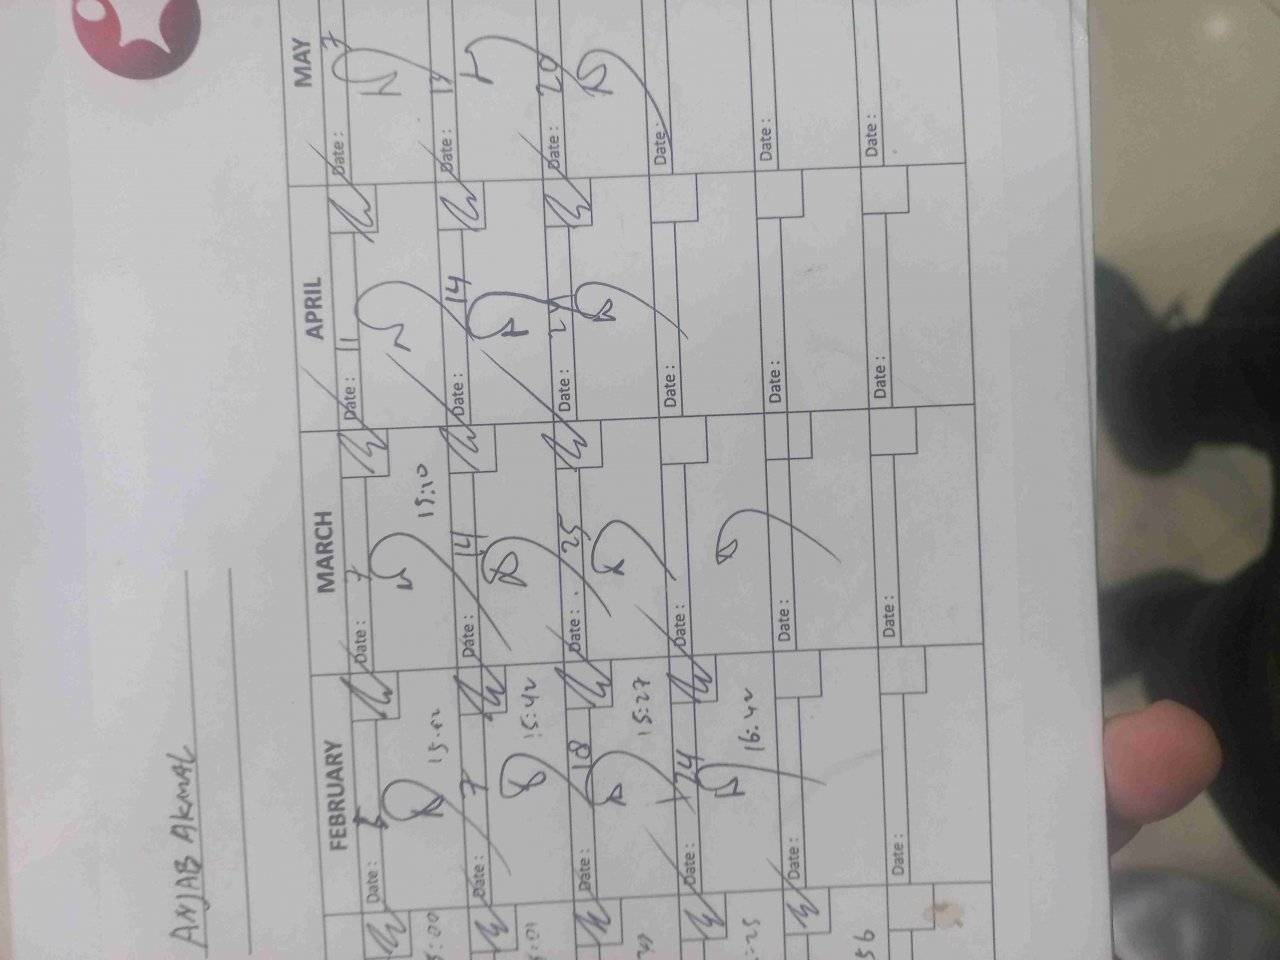 ANJAB AKMAL
FEBRUARY MARCH APRIL MAY
Date: 5 Date: 7 Date: 11 Date: 7
15:02 15:10
5:00
Date: 7 Date: 14 Date: 14 Date: 13
15:42
Date: 18 Date: 25 Date: Date: 20
15:27
Date: 24 Date: Date: Date:
16:42
:25
Date: Date: Date: Date:
56
Date: Date: Date: Date: